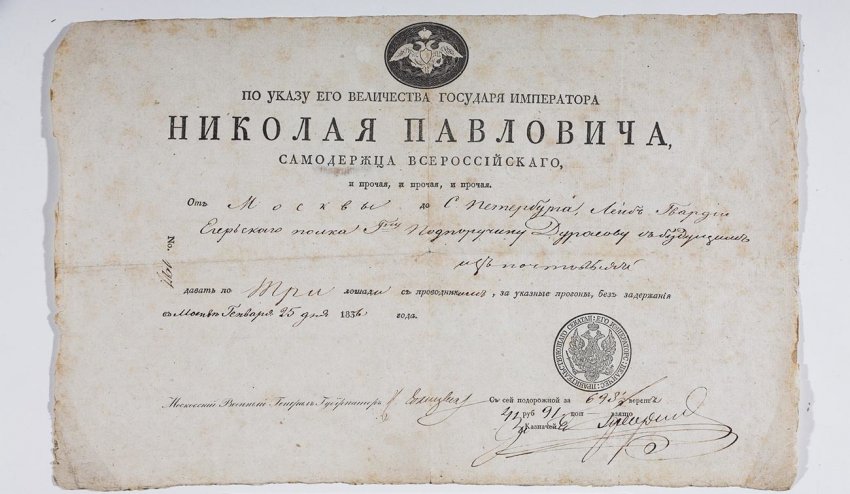 ПО УКАЗУ ЕГО ВЕЛИЧЕСТВА ГОСУДАРЯ ИМПЕРАТОРА
НИКОЛАЯ ПАВЛОВИЧА,
САМОДЕРЖЦА ВСЕРОССІЙСКАГО,
и прочая, и прочая, и прочая.
Отъ Москвы до С Петербурга, Лейбъ Гвардіи
Егерьскаго полка Подпоручику Дурасову съ будущимъ
No.
давать по три лошади съ проводникомъ, за указные прогоны, безъ задержанія
въ Москвѣ Генваря 25 дня 1836 года.
Московскій Военный Генералъ Губернаторъ
Съ сей подорожной за верстъ
руб 91 коп взято
Казначей